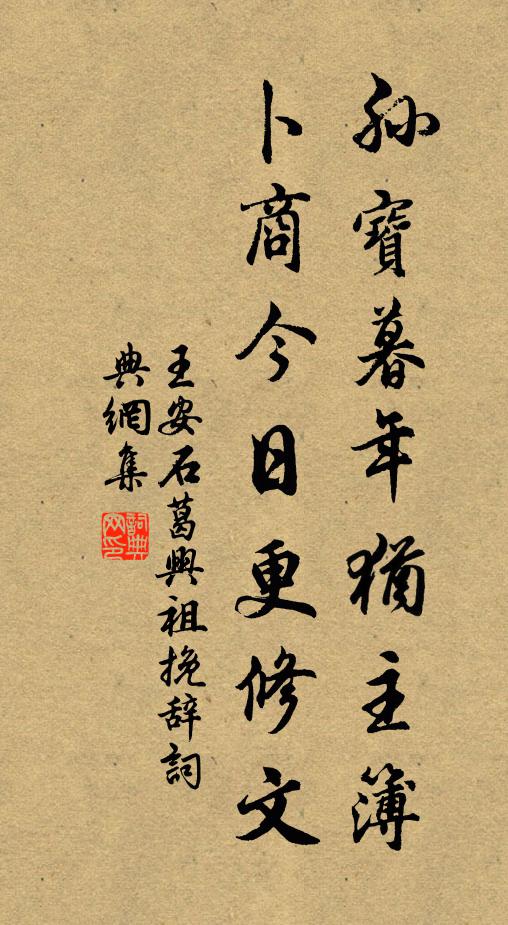 孫寶暮年猶主簿
卜商今日更修文
王安石葛興祖挽辞詞
典網集
詞典網印